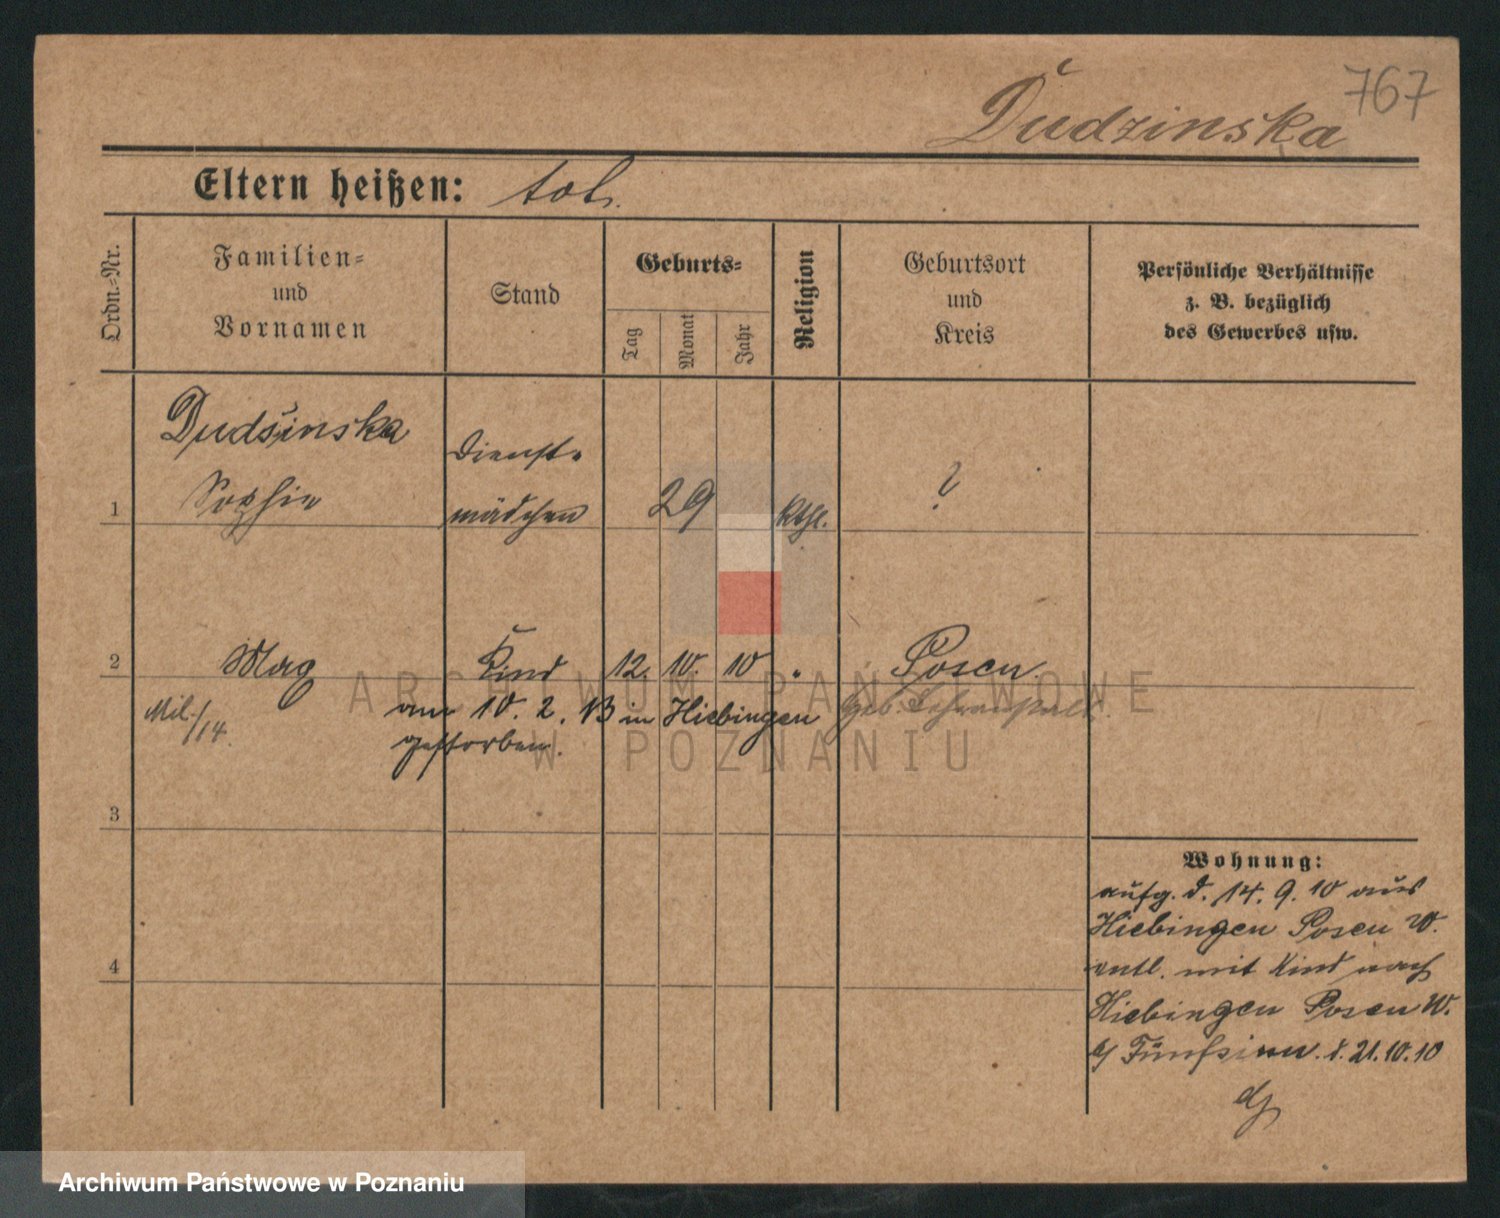 767
Dudzinska
Eltern heißen: tot.
Ordn.-Nr.
Familien-
und
Vornamen
Stand
Geburts-
Tag
Monat
Jahr
Religion
Geburtsort
und
Kreis
Persönliche Verhältnisse
z. B. bezüglich
des Gewerbes usw.
Dudsinska
Sophie
Dienst-
mädchen
1
29
kthl.
?
2
Mag
Kind
12.
10.
10
"
Posen.
Mil./14.
am 10. 2. 13 in Hiebingen
gestorben.
geb.
3
4
Wohnung:
aufg. d. 14. 9. 10 aus
Hiebingen Posen W.
entl. mit Kind nach
Hiebingen Posen W.
d. 21.10.10
ARCHIWUM PAŃSTWOWE
W POZNANIU
Archiwum Państwowe w Poznaniu